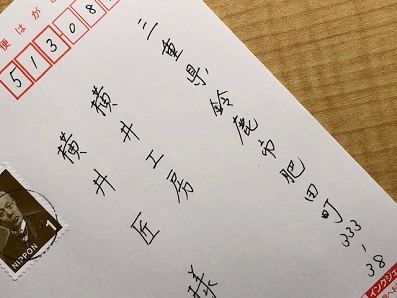 便はが
51308
三重県鈴鹿市肥田町333-38
横井工房
横井 匠 様
NIPPON
1
インクジェ